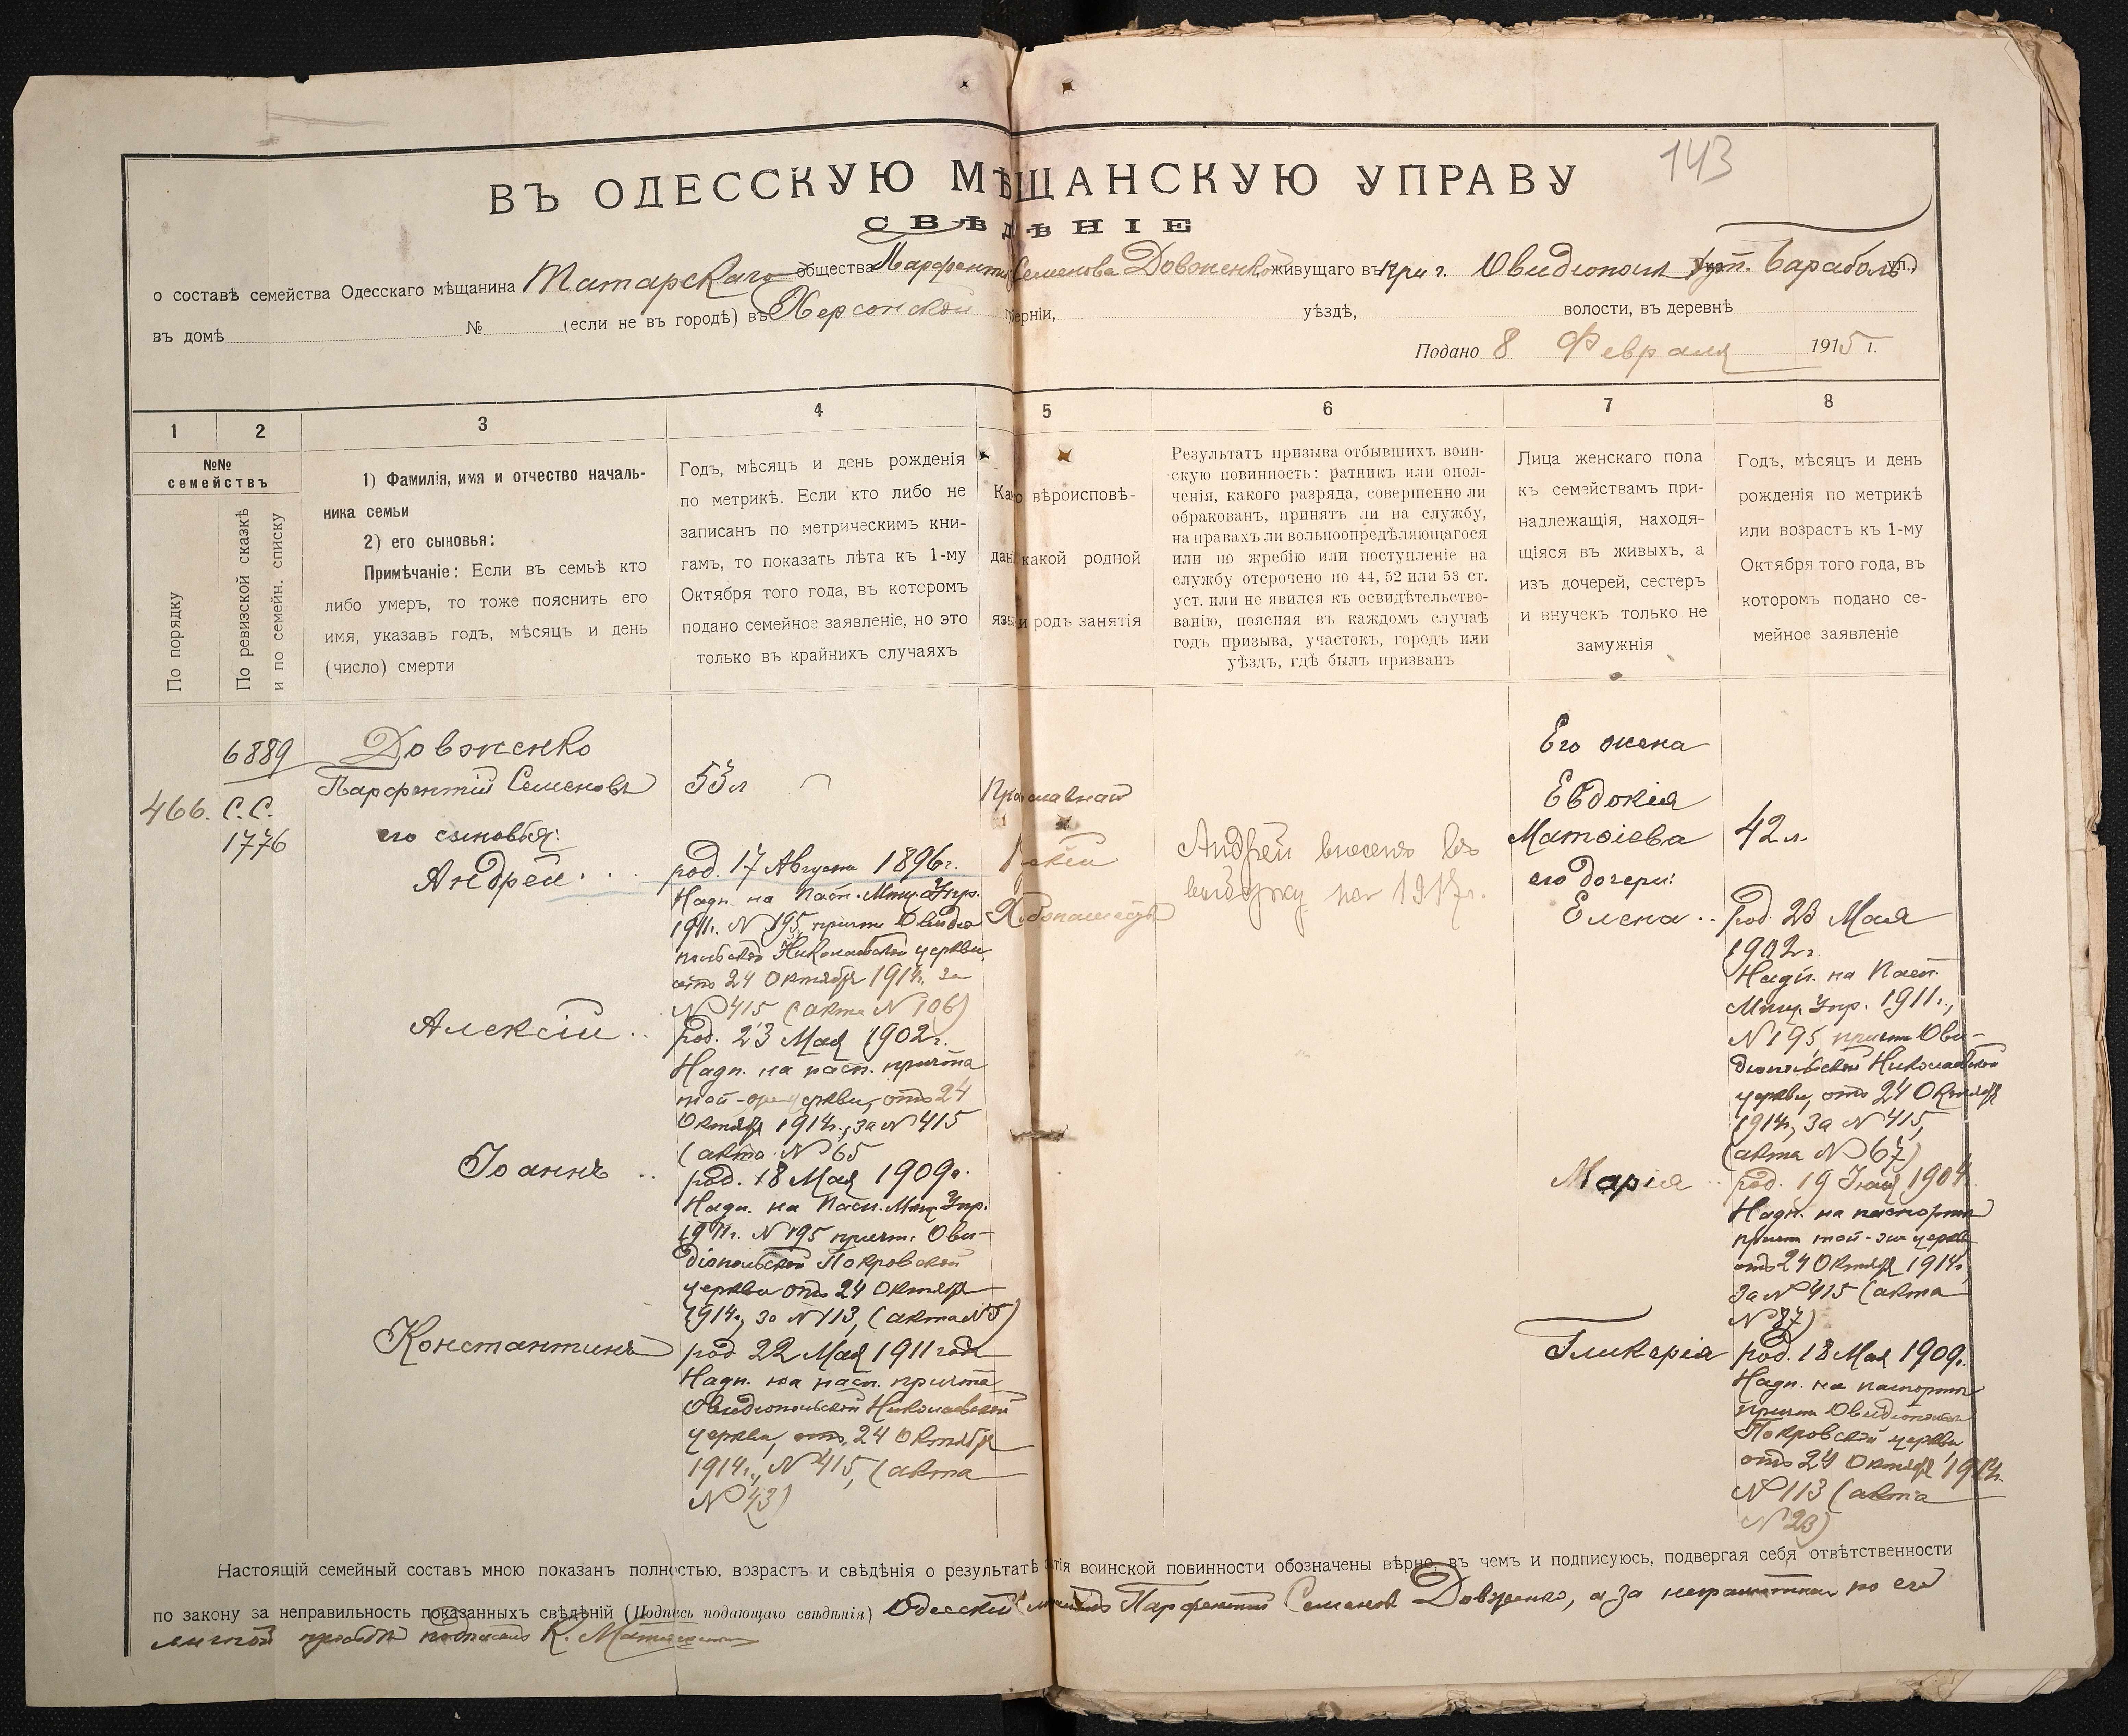 143
ВЪ ОДЕССКУЮ МѢЩАНСКУЮ УПРАВУ
СВѢДѢНІЕ
о составѣ семейства Одесскаго мѣщанина Татарскаго общества Парфентія Семенова Довженко живущаго въ при г. Овидіополь хут. Бараболь
въ домѣ № (если не въ городѣ) въ Херсонской губерніи, уѣздѣ, волости, въ деревнѣ
Подано 8 Февраля 1915 г.
1
2
3
4
5
6
7
8
№№
семействъ
По порядку
По ревизской сказкѣ
и по семейн. списку
1) Фамилія, имя и отчество началь-
ника семьи
2) его сыновья:
Примѣчаніе: Если въ семьѣ кто
либо умеръ, то тоже пояснить его
имя, указавъ годъ, мѣсяцъ и день
(число) смерти
Годъ, мѣсяцъ и день рожденія
по метрикѣ. Если кто либо не
записанъ по метрическимъ кни-
гамъ, то показать лѣта къ 1-му
Октября того года, въ которомъ
подано семейное заявленіе, но это
только въ крайнихъ случаяхъ
вѣроисповѣ-
какой родной
и родъ занятія
Результатъ призыва отбывшихъ воин-
скую повинность: ратникъ или опол-
ченія, какого разряда, совершенно ли
обракованъ, принятъ ли на службу,
на правахъ ли вольноопредѣляющагося
или по жребію или поступленіе на
службу отсрочено по 44, 52 или 53 ст.
уст. или не явился къ освидѣтельство-
ванію, поясняя въ каждомъ случаѣ
годъ призыва, участокъ, городъ или
уѣздъ, гдѣ былъ призванъ
Лица женскаго пола
къ семействамъ при-
надлежащія, находя-
щіяся въ живыхъ, а
изъ дочерей, сестеръ
и внучекъ только не
замужнія
Годъ, мѣсяцъ и день
рожденія по метрикѣ
или возрастъ къ 1-му
Октября того года, въ
котором подано се-
мейное заявленіе
466.
6889
С.С.
1776
Довженко
Парфентій Семеновъ
его сыновья:
Андрей . . .
Алексій . .
Іоаннъ . .
Константинъ
53 л
род. 17 Августа 1896 г.
Надп. на Пасп. Мѣщ. Упр.
1911 г. N 195, причта Овидіо
польской Николаевской церкви,
отъ 24 Октября 1914 г. за
N 415 (акта N 106)
род. 23 Мая 1902 г.
Надп. на пасп. причта
той-же церкви, отъ 24
Октября 1914 г., за N 415
(акта N 65
род. 18 Мая 1909 г.
Надп. на Пасп. Мѣщ. Упр.
1911 г. N 195 причт. Ови-
діопольской Покровской
церкви отъ 24 Октября
1914 г., за N 113, (акта N 5)
род 22 Мая 1911 года
Надп. на пасп. причта
Овидіопольской Николаевской
церкви, отъ 24 Октября
1914 г., N 415, (акта
N 43)
Православной
Хлѣбопашецъ
Андрей внесенъ въ
на 1917 г.
Его жена
Евдокія
Матвіева
его дочери:
Елена . .
Марія . .
Гликерія
42 л.
род. 23 Мая
1902 г.
Надп. на Пасп.
Мѣщ. Упр. 1911 г.,
N 195, причта Ови-
діопольской Николаевской
церкви, отъ 24 Октября
1914 г, за N 415,
(акта N 67)
род. 19 1904
Надп. на паспортѣ
причта той-же церкви
отъ 24 Октября 1914 г,
за N 415 (акта
N 87)
род. 18 Мая 1909 г.
Надп. на паспортѣ
причта Овидіопольской
Покровской церкви
отъ 24 Октября 1914 г.
N 113 (акта
N 23)
Настоящій семейный составъ мною показанъ полностью, возрастъ и свѣдѣнія о результатѣ воинской повинности обозначены вѣрно, въ чемъ и подписуюсь, подвергая себя отвѣтственности
по закону за неправильность показанныхъ свѣдѣній (Подпись подающаго свѣдѣнія) Одесскій мѣщанинъ Парфентій Семеновъ Довженко, а за неграмотного по его
личной просьбѣ подписалъ К.